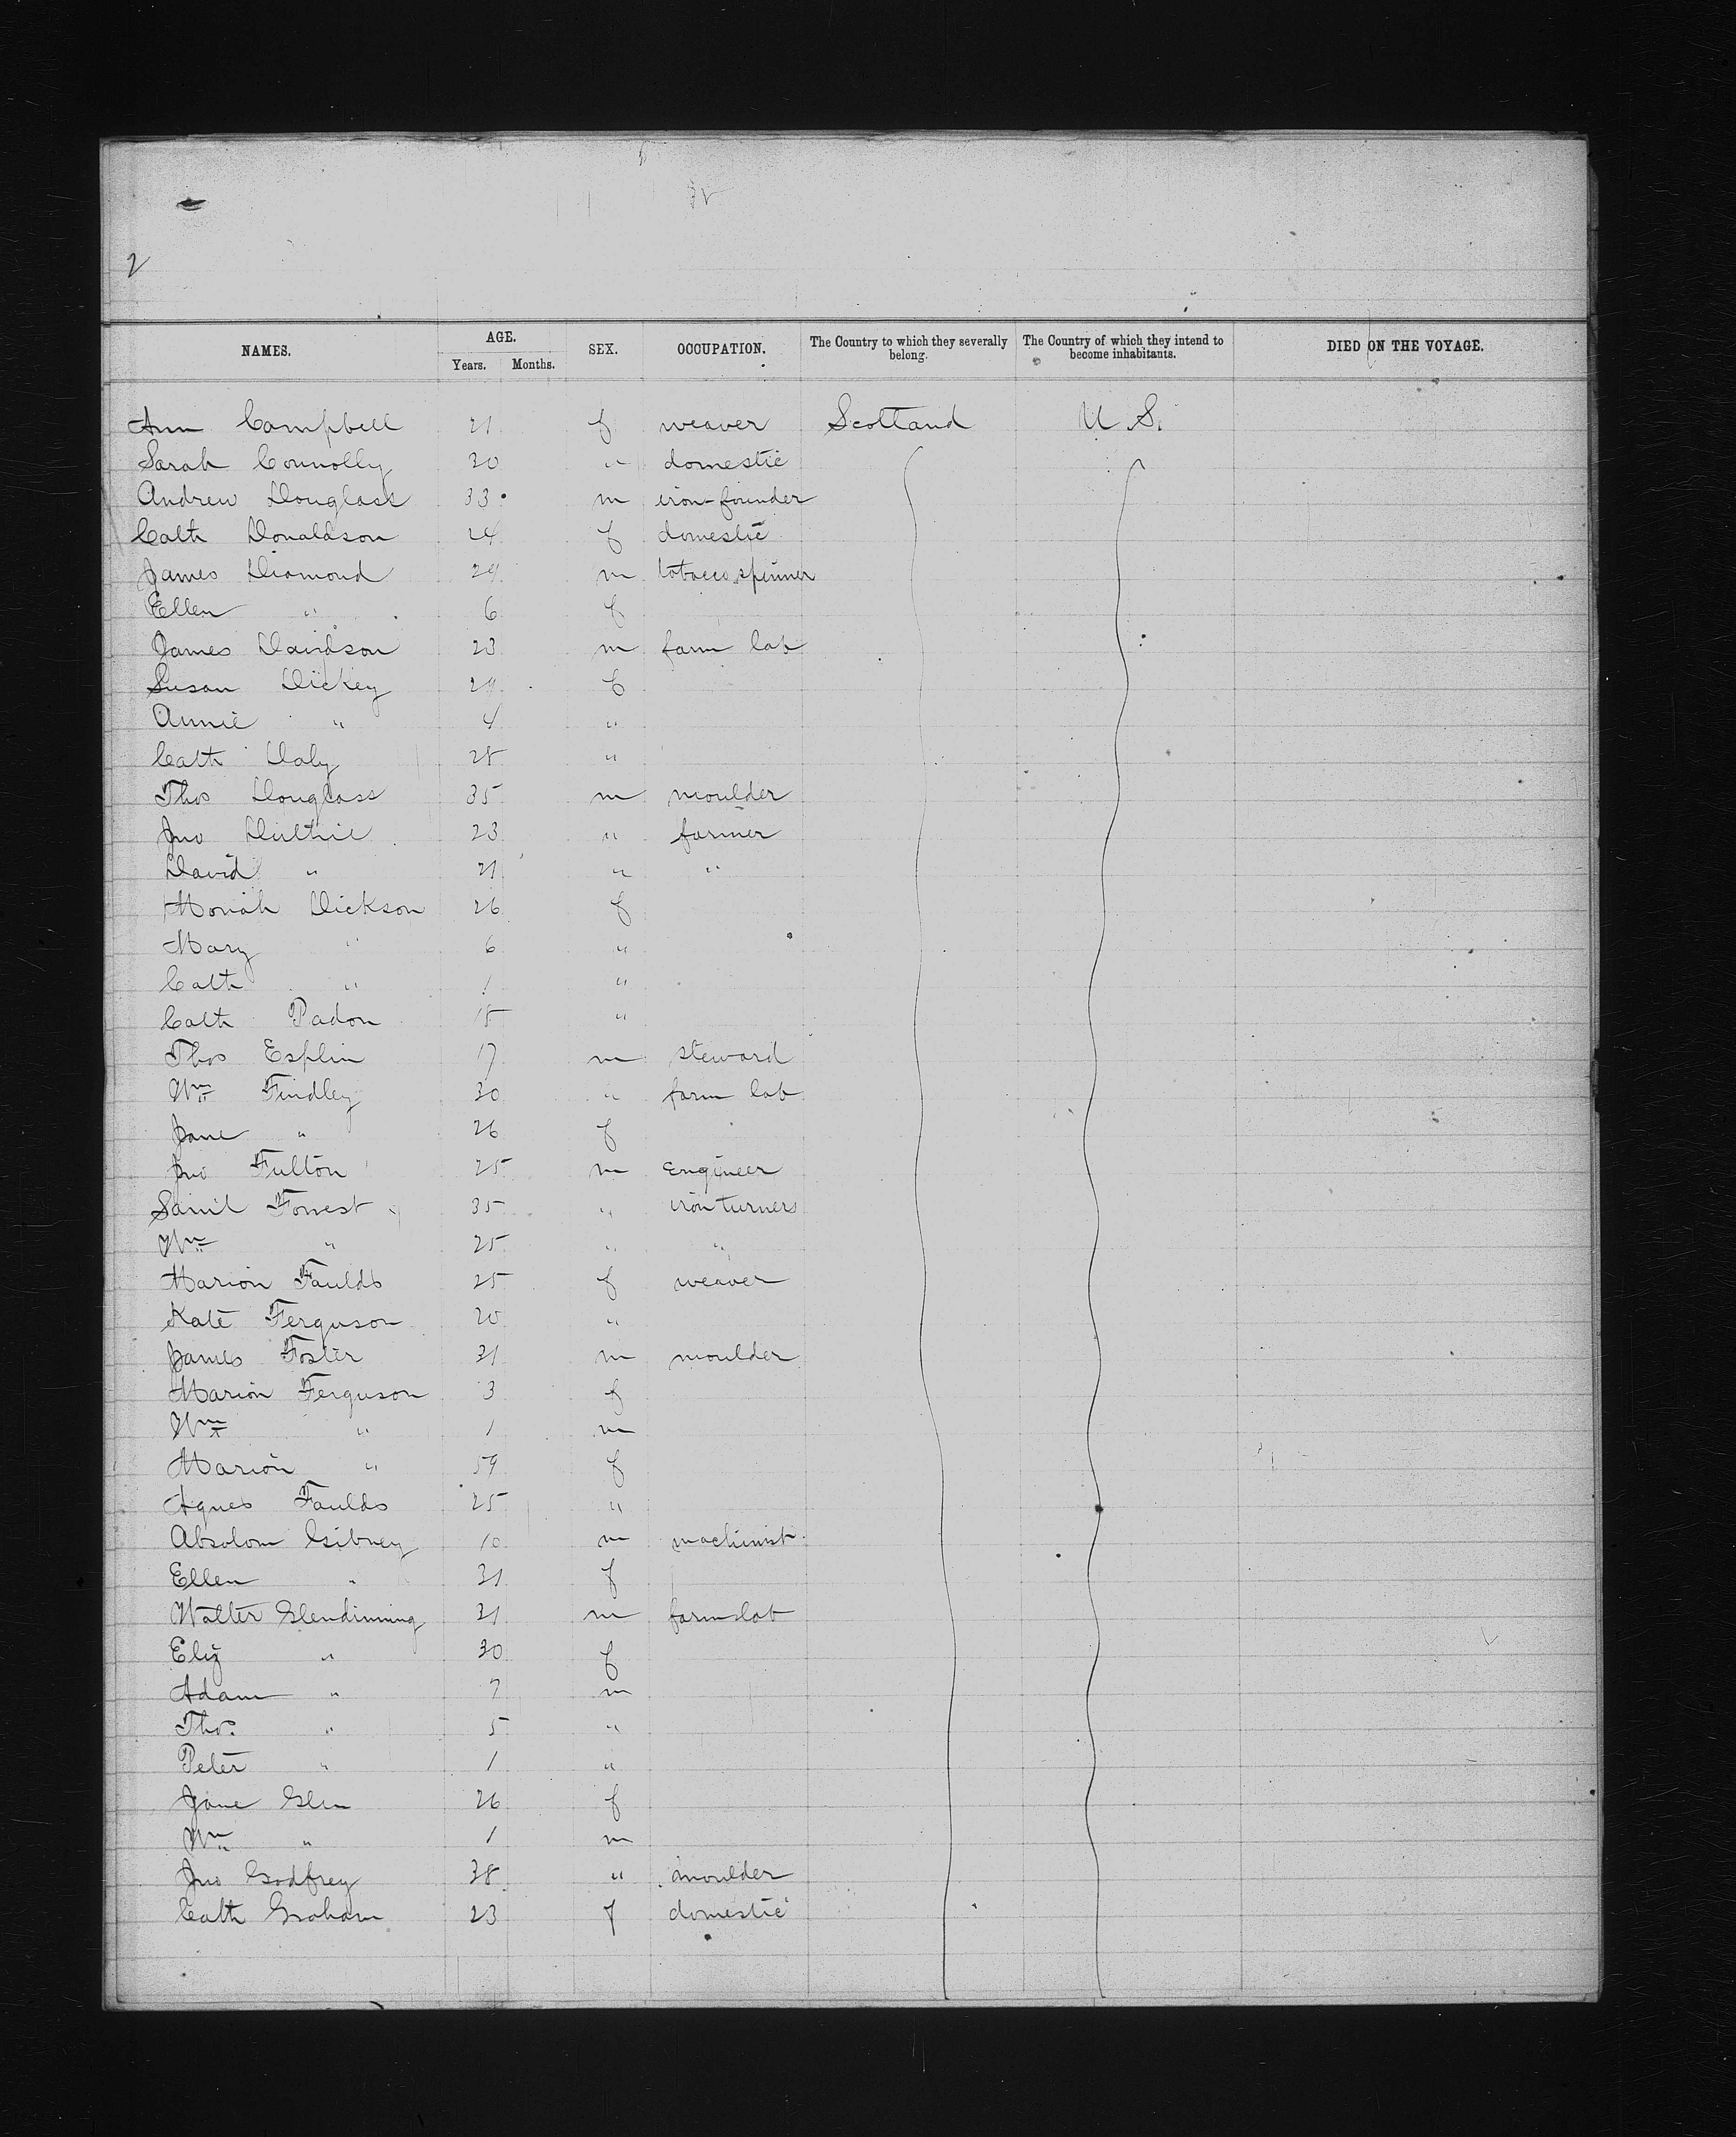 2
NAMES. AGE. Years. Months. SEX. OCCUPATION. The Country to which they severally belong. The Country of which they intend to become inhabitants. DIED ON THE VOYAGE.
Ann Campbell 21 f weaver Scotland U.S.
Sarah Connolly 30 " domestic
Andrew Douglass 33 m iron-founder
Cath Donaldson 24 f domestic
James Diamond 29 m tobacco spinner
Ellen " 6 f
James Davidson 23 m farm lab
Susan Dickey 29 f
Annie " 4 "
Cath Daly 28 "
Thos Douglass 35 m moulder
Jno Duthie 23 " farmer
David " 21 " "
Moriah Dickson 26 f
Mary " 6 "
Cath " 1 "
Cath Padon 18 "
Thos Esplin 17 m steward
Wm Findley 30 " farm lab
Jane " 26 f
Jno Fulton 25 m engineer
Saml Forrest 35 " iron turners
Wm " 25 " "
Marion Faulds 25 f weaver
Kate Ferguson 20 "
James Foster 31 m moulder
Marion Ferguson 3 f
Wm " 1 m
Marion " 59 f
Agnes Faulds 25 "
Absolom Gibney 10 m machinist
Ellen " 31 f
Walter Glendinning 31 m farm lab
Eliz " 30 f
Adam " 7 m
Thos. " 5 "
Peter " 1 "
Jane Glen 26 f
Wm " 1 m
Jno Godfrey 38 " moulder
Cath Graham 23 f domestic